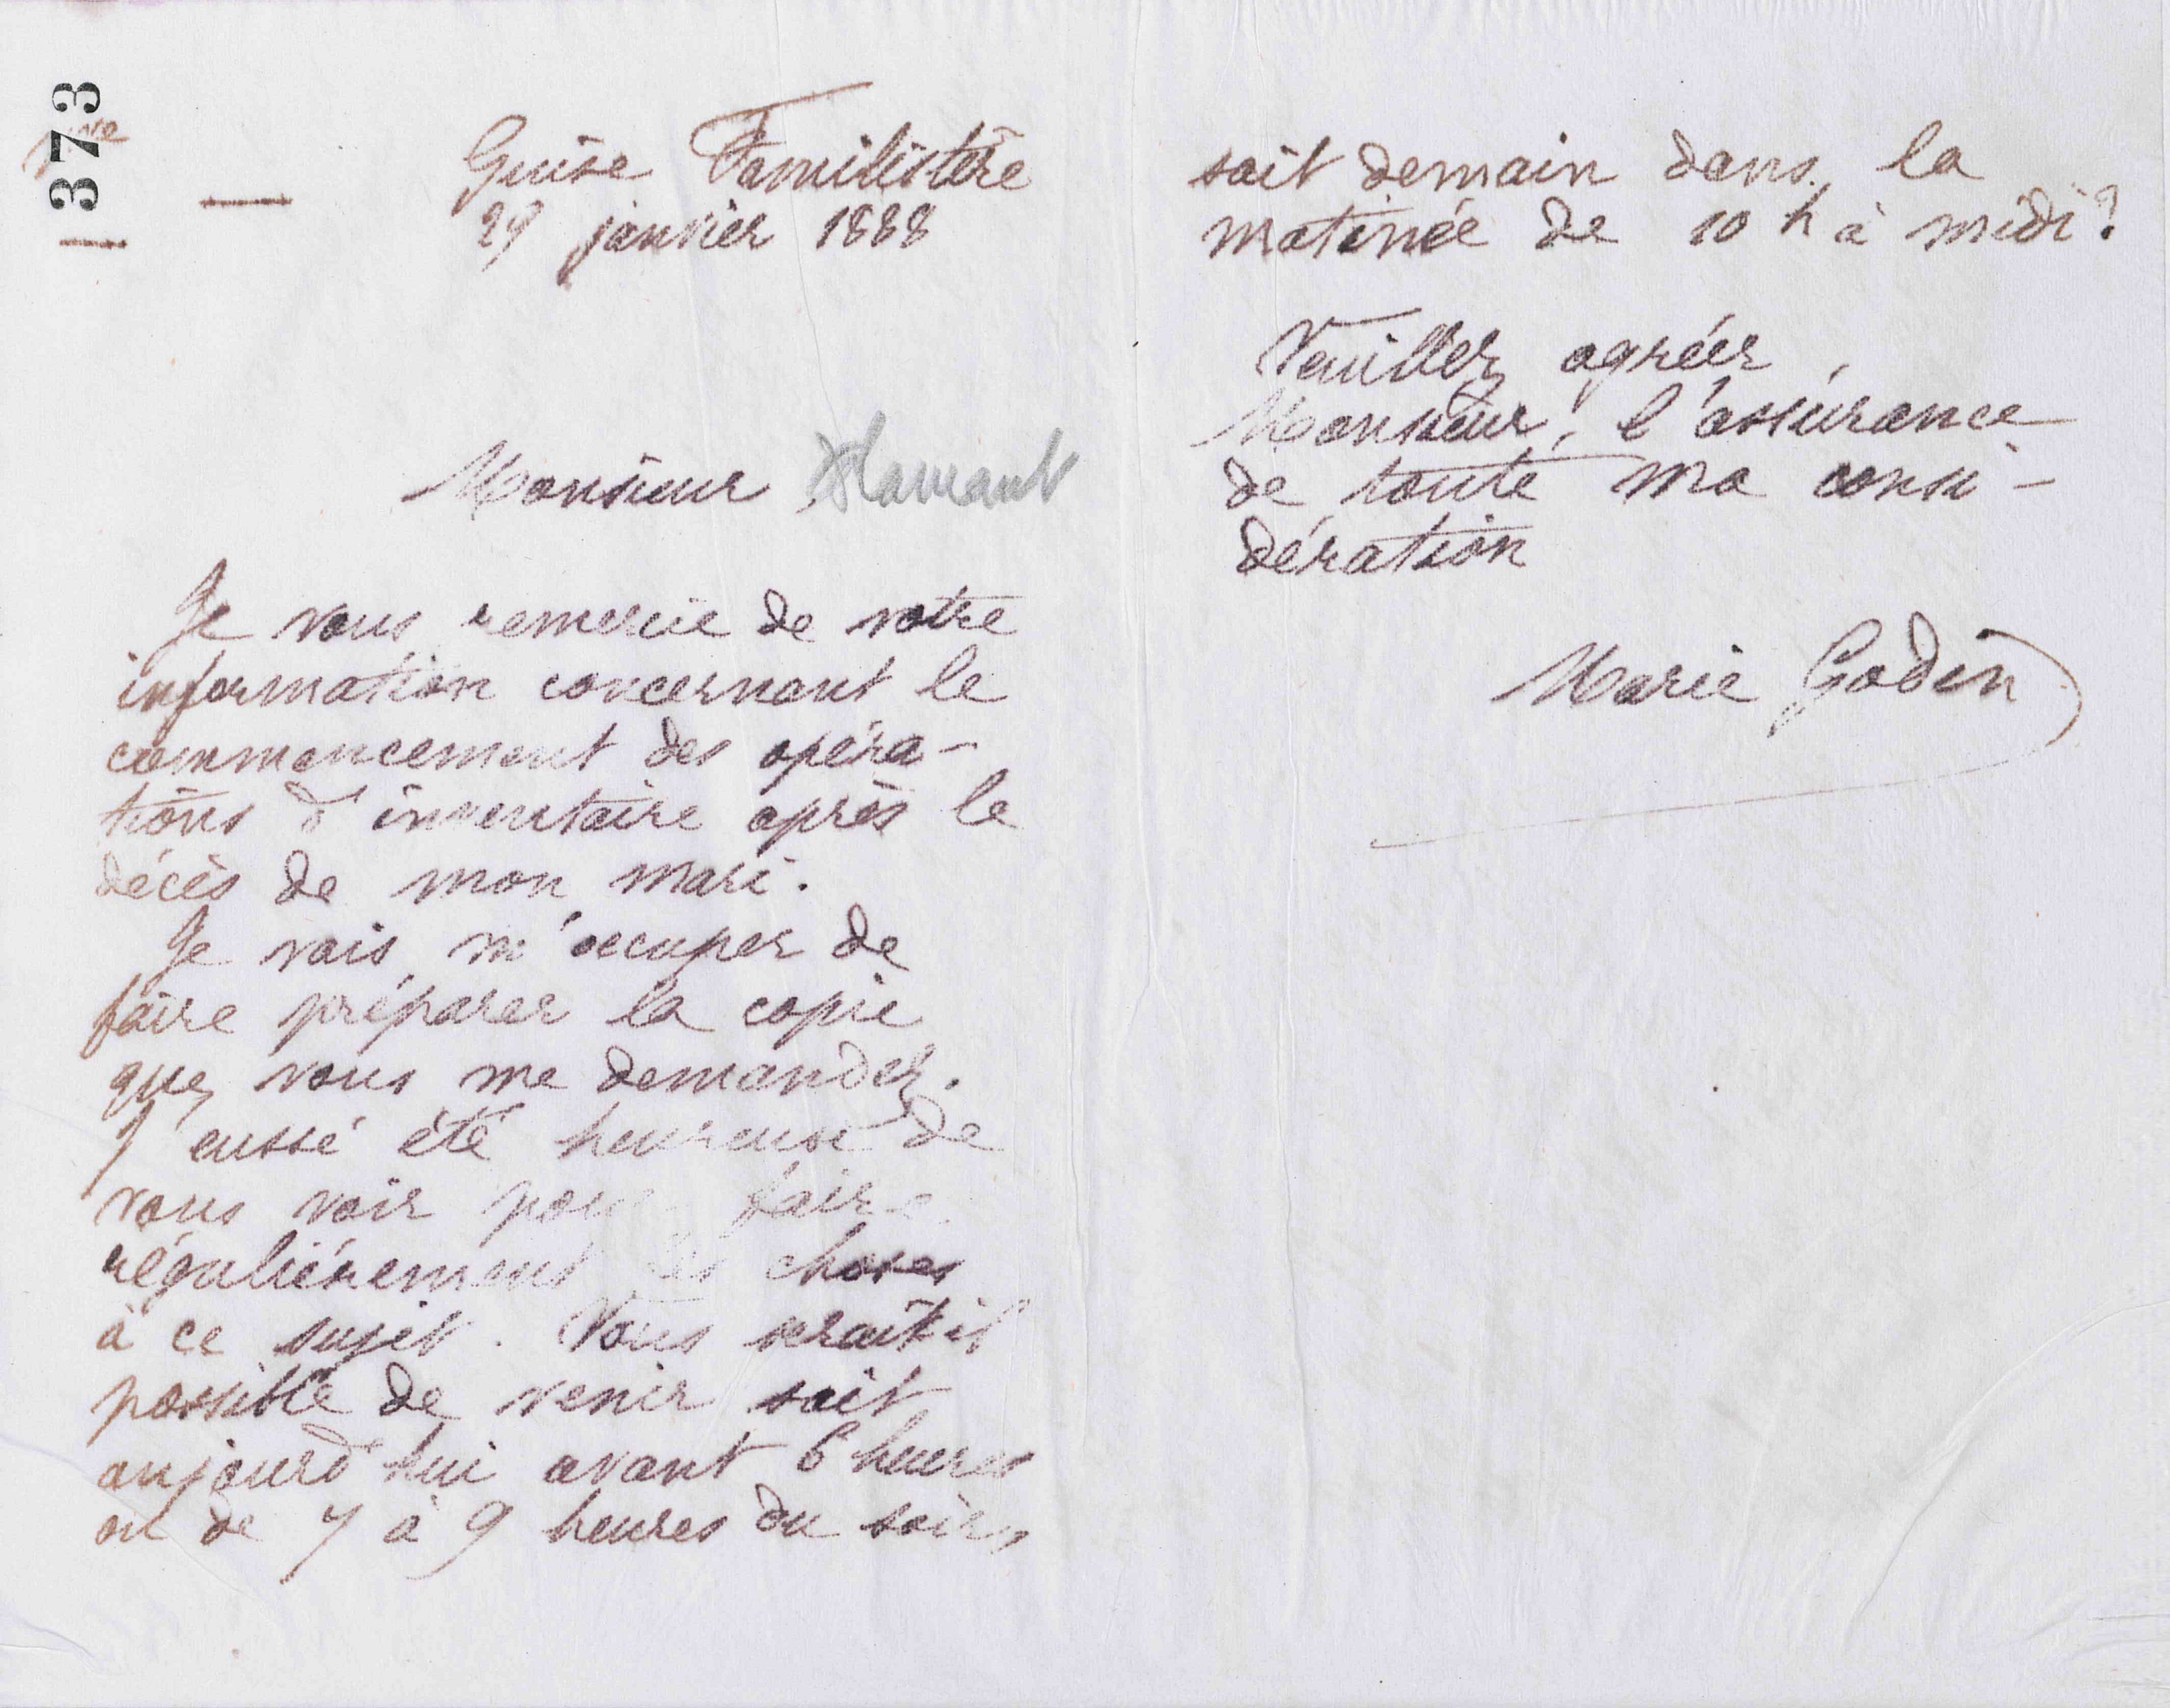 373
Guise Familistère
29 janvier 1888
Monsieur
Je vous remercie de votre
information concernant le
commencement des opéra-
tions d'inventaire après le
décès de mon mari.
Je vais m'occuper de
faire préparer la copie
que vous me demandez.
J'eusse été heureuse de
vous voir pour faire
régulièrement les choses
à ce sujet. Vous serait-il
possible de venir soit
aujourd'hui avant 6 heures
ou de 7 à 9 heures du soir,
soit demain dans la
matinée de 10 h à midi?
Veuillez agréer,
Monsieur, l'assurance
de toute ma consi-
dération
Marie Godin